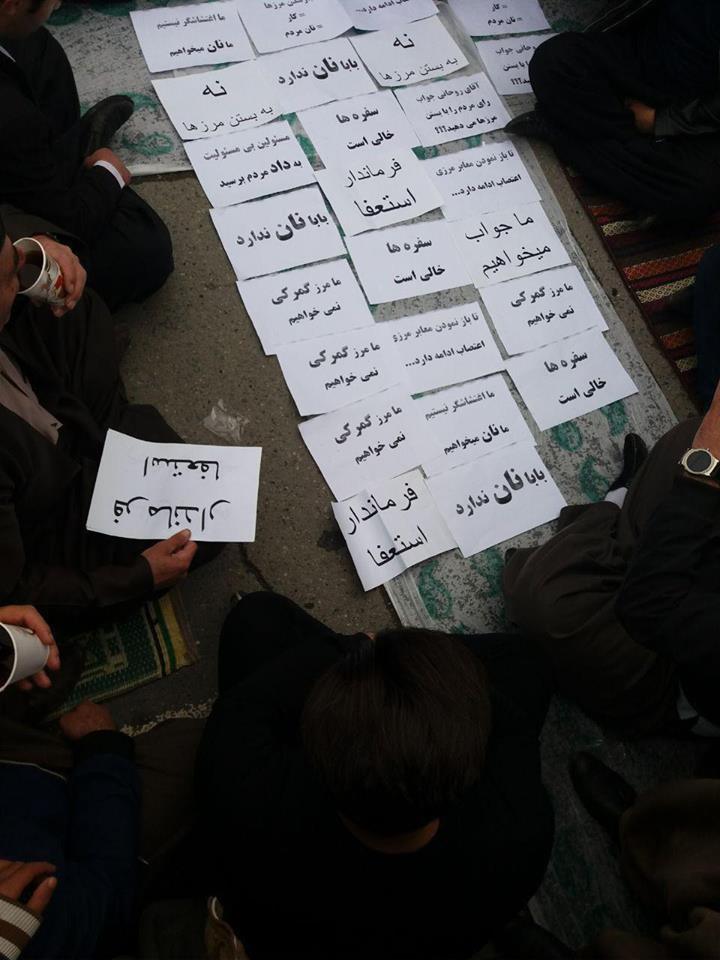 ما اغتشاشگر نیستیم
ما نان میخواهیم
مرزها
= کار
= نان مردم
ادامه دارد...
= کار
= نان مردم
نه
به بستن مرزها
بابا نان ندارد
نه
به بستن مرزها
آقای روحانی جواب
مسئولین بی مسئولیت
به داد مردم برسید
سفره ها
خالی است
آقای روحانی جواب
رای مردم را با بستن
مرزها می دهید؟!!
بابا نان ندارد
فرماندار
استعفا
تا باز نمودن معابر مرزی
اعتصاب ادامه دارد...
ما مرز گمرکی
نمی خواهیم
سفره ها
خالی است
ما جواب
میخواهیم
ما مرز گمرکی
نمی خواهیم
تا باز نمودن معابر مرزی
اعتصاب ادامه دارد...
ما مرز گمرکی
نمی خواهیم
ما مرز گمرکی
نمی خواهیم
ما اغتشاشگر نیستیم
ما نان میخواهیم
سفره ها
خالی است
فرماندار
استعفا
بابا نان ندارد
فرماندار
استعفا